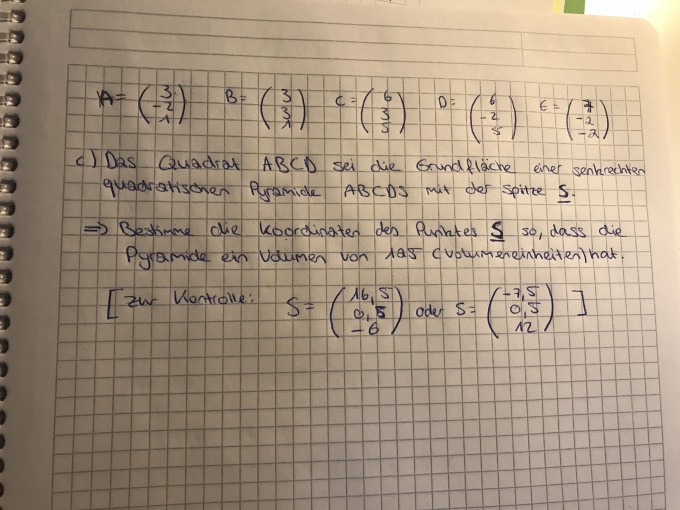 A = ( 3 -2 1 ) B = ( 3 3 1 ) C = ( 6 3 5 ) D = ( 6 -2 5 ) E = ( 7 -2 -2 )
c) Das Quadrat ABCD sei die Grundfläche einer senkrechten
quadratischen Pyramide ABCDS mit der Spitze S.
=> Bestimme die Koordinaten des Punktes S so, dass die
Pyramide ein Volumen von 125 (Volumeneinheiten) hat.
[ zur Kontrolle: S = ( 16,5 0,5 -6 ) oder S = ( -7,5 0,5 12 ) ]